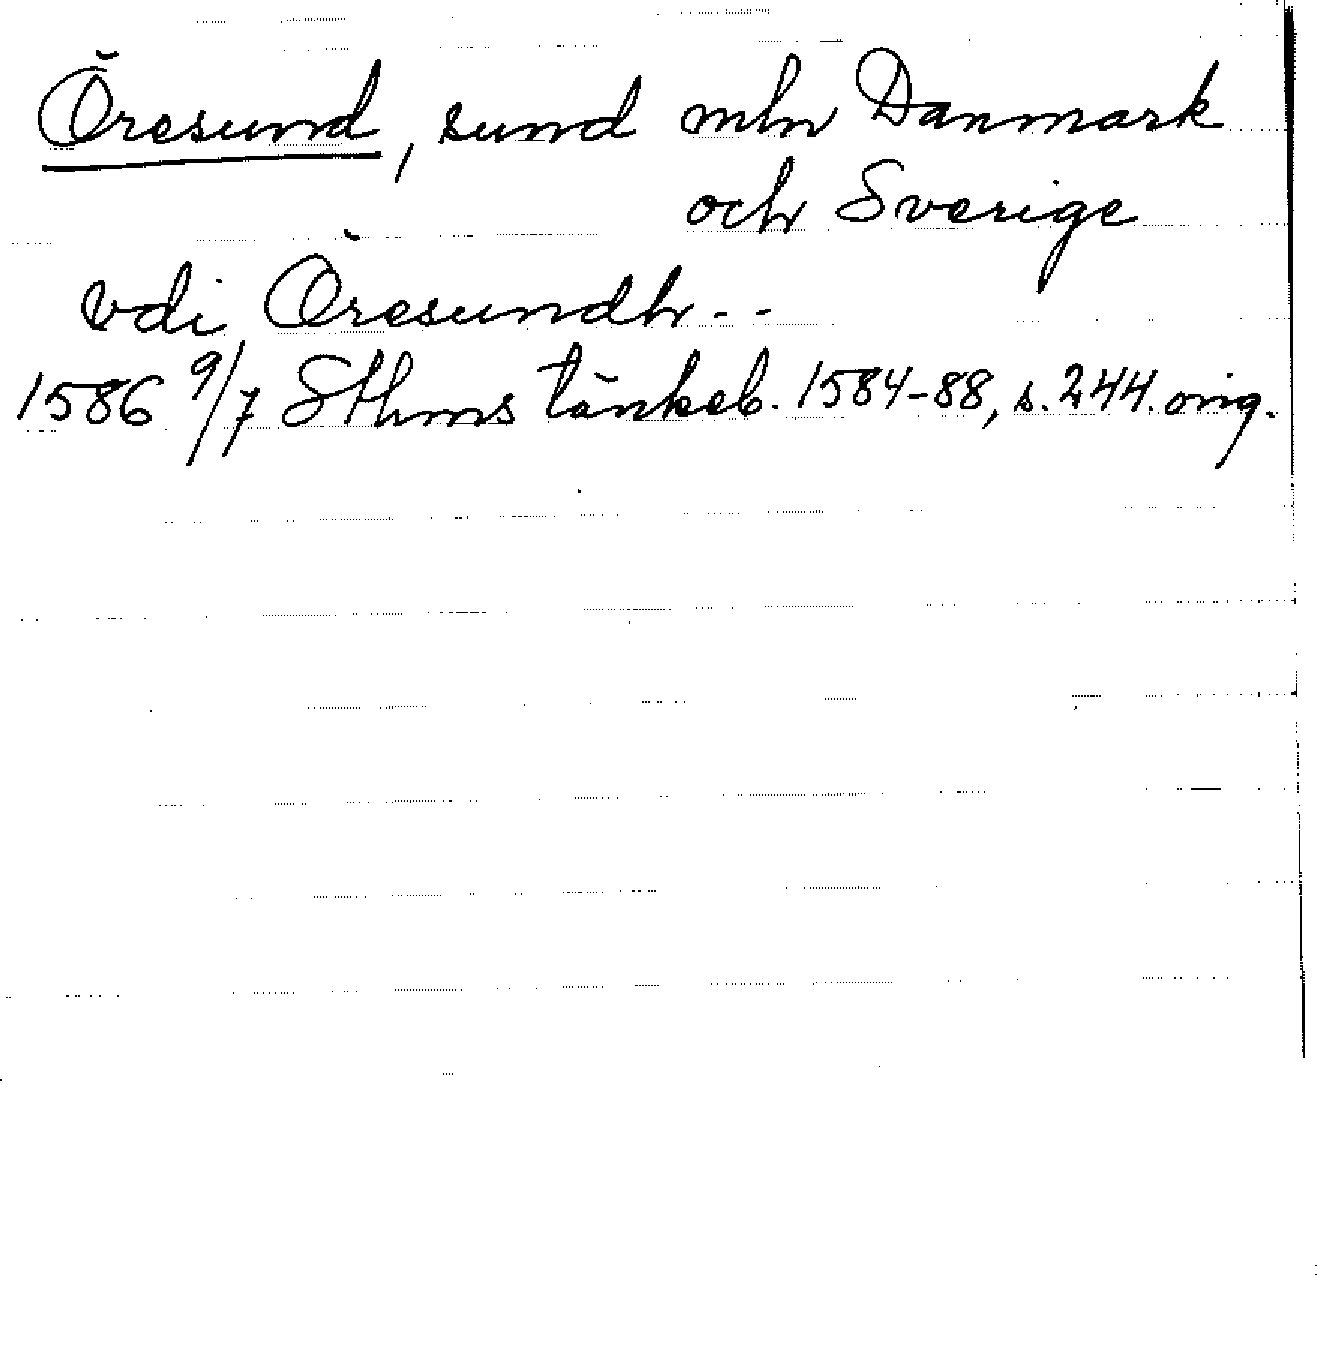 Öresund, sund mln Danmark
och Sverige
vdi Öresundh--
1586 9/7 Sthms tänkeb. 1584-88, s. 244. orig.